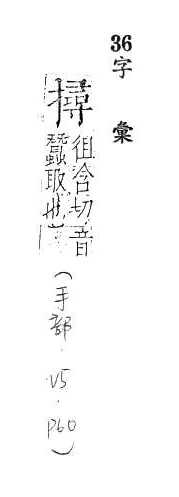 36 字彙
撏
徂含切音
蠶取也
(手部.V5.P60)